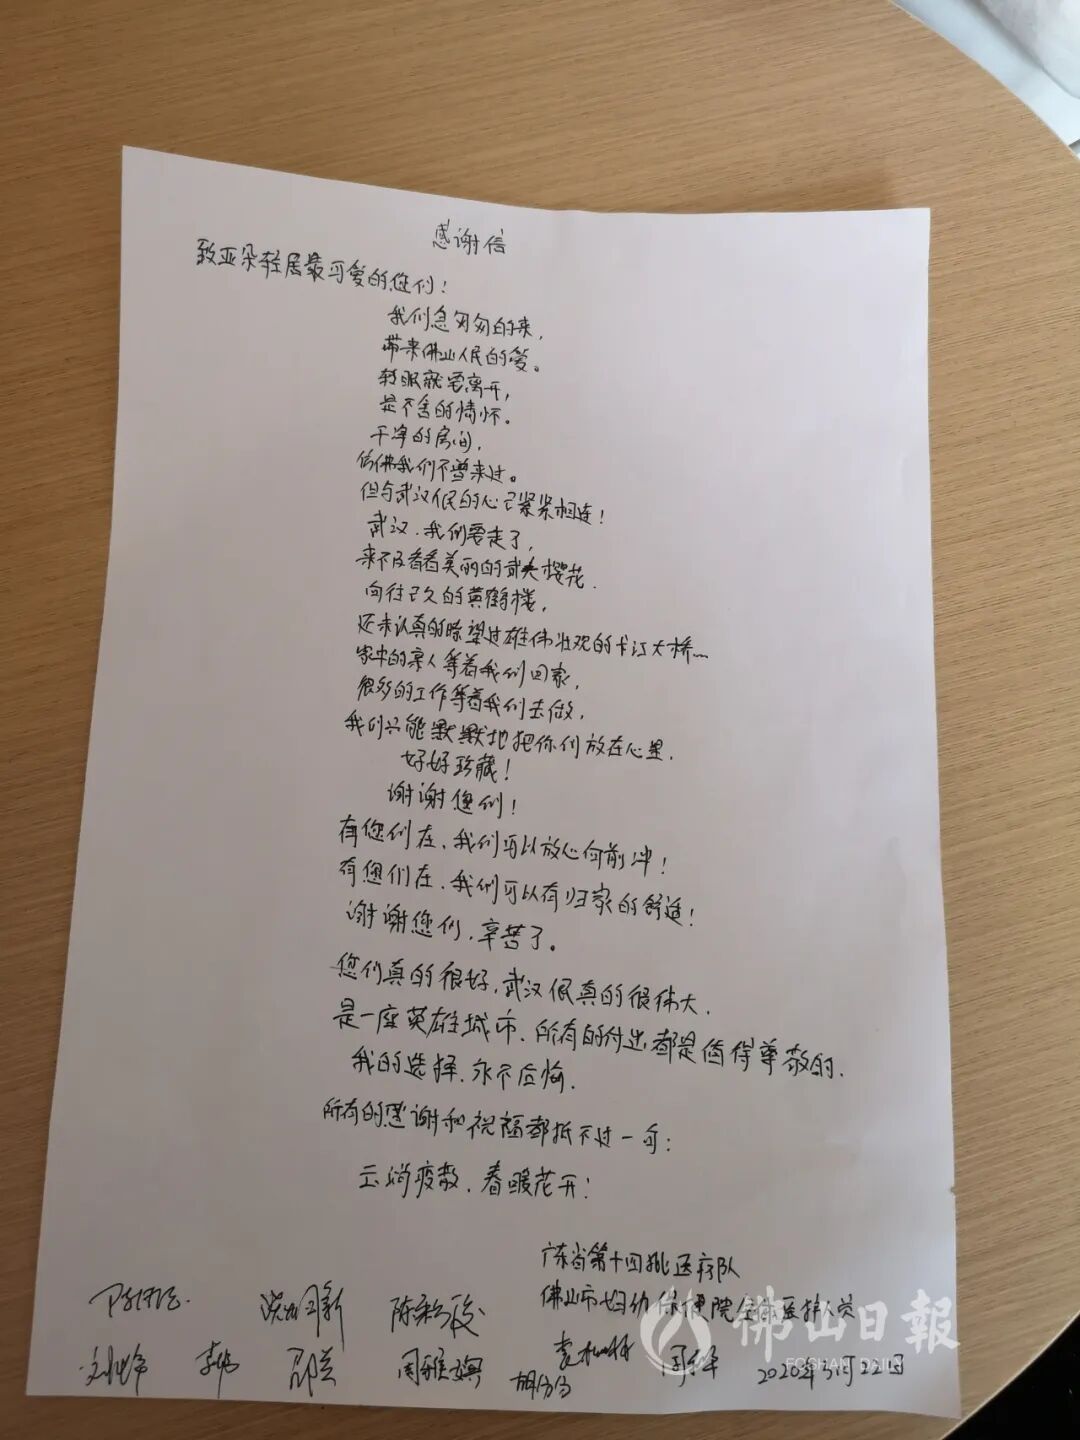 感谢信
致亚朵轻居最可爱的您们！
我们急匆匆的来，
带来佛山人民的爱。
转眼就要离开，
是不舍的情怀。
干净的房间，
仿佛我们不曾来过。
但与武汉人民的心已紧紧相连！
武汉，我们要走了，
来不及看看美丽的武大樱花，
向往已久的黄鹤楼，
还未认真的瞭望过雄伟壮观的长江大桥…
家中的亲人等着我们回家，
很多的工作等着我们去做，
我们只能默默地把你们放在心里，
好好珍藏！
谢谢您们！
有您们在，我们可以放心向前冲！
有您们在，我们可以有归家的舒适！
谢谢您们，辛苦了。
您们真的很好，武汉人民真的很伟大，
是一座英雄城市，所有的付出都是值得尊敬的，
我的选择，永不后悔，
所有的感谢和祝福都抵不过一句：
云消疫散，春暖花开！
广东省第十四批医疗队
佛山市妇幼保健院全体医护人员
2020年3月22日
佛山日報
FOSHAN DAILY